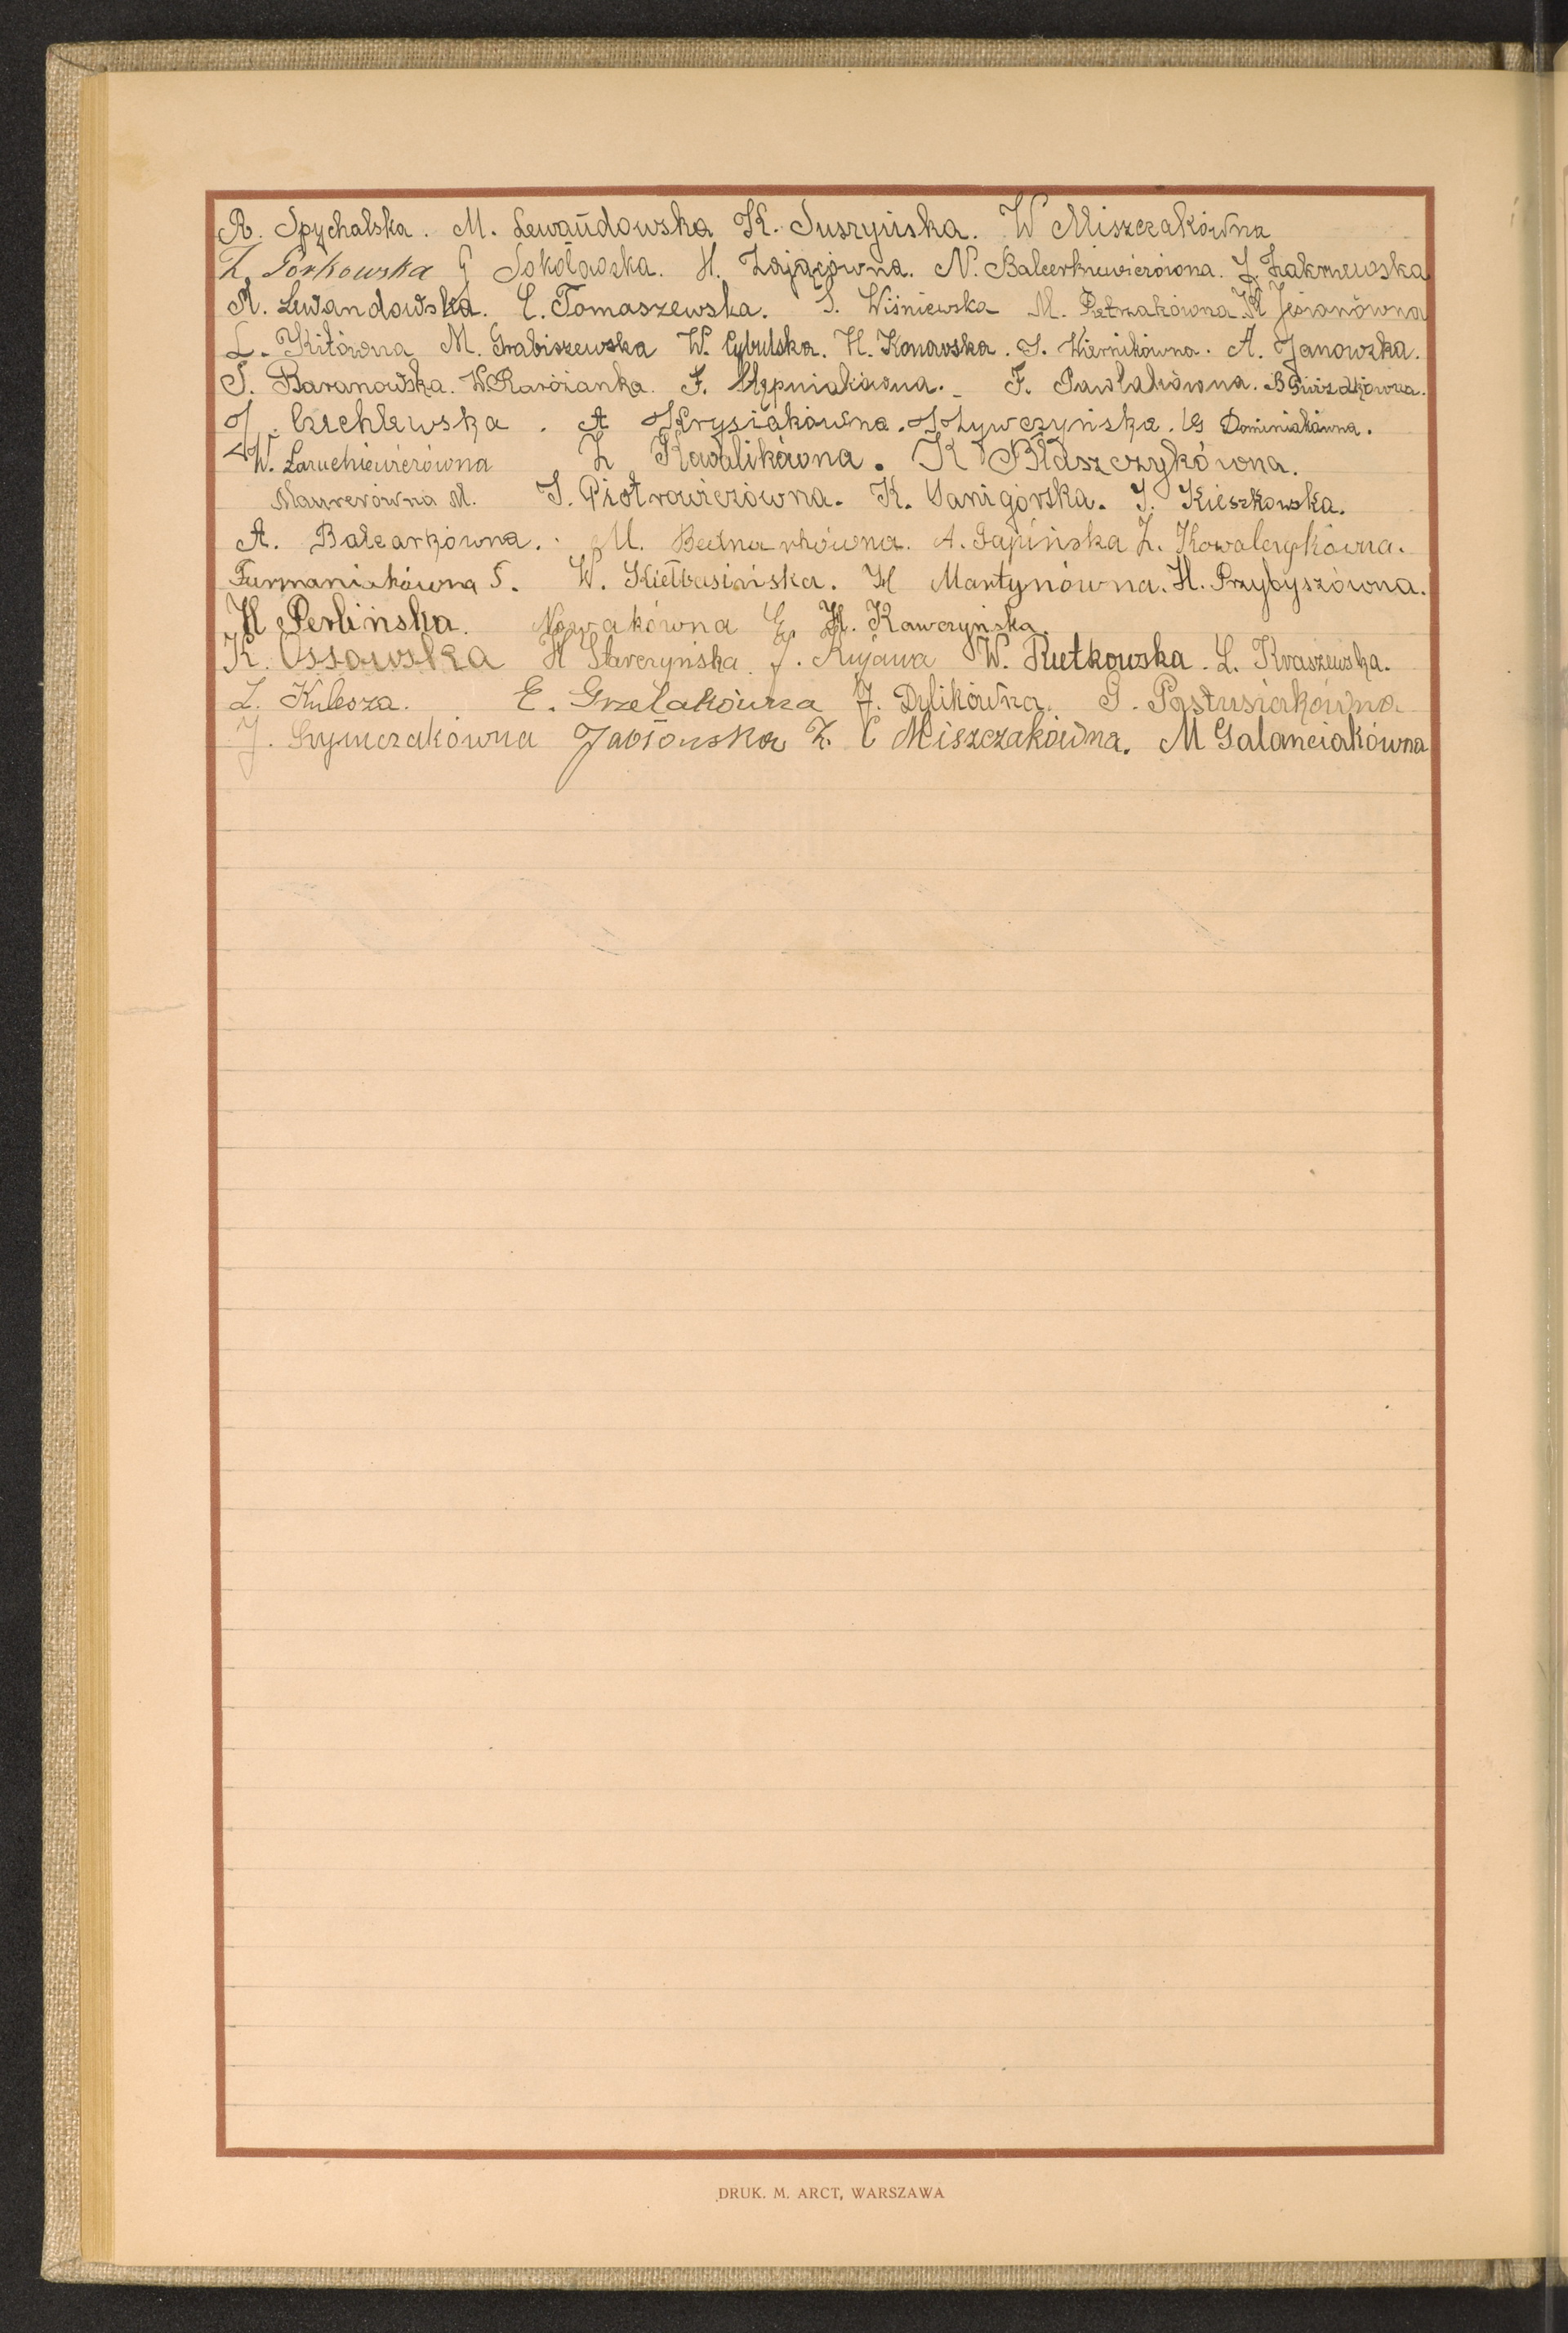 R. Spychalska. M. Lewandowska K. Suszyńska. W Miszczakówna
Z. Porkowska G Sokołowska. H. Zającówna. N. Balcerkiewiczówna. J. Zakrzewska
A. Lewandowska. C. Tomaszewska. S. Wiśniewska M. Pietrzakówna. K Jeżranówna
L. Kitówna M. Grabiszewska W. Cybulska. H. Konarska. S. Wiernikówna. A. Janowska.
S. Baranowska. W. Raróżanka. F. Stępniakówna. F. Pawlakówna. B Gwiazdkówna.
J. Cichlewska. A Krysiakówna. S Żywczyńska. G Dominiakówna.
W. Laruchiewiczówna Z Kawalikówna. K Błaszczykówna.
Maurerówna M. S. Piotrowiczówna. K. Danigórska. J. Kieszkowska.
A. Balcarkówna. M. Bednarkówna. A. Gapińska Z. Kowalczykówna.
Furmaniakówna S. W. Kiełbasińska. H Martynówna. H. Przybyszówna.
H Perlińska. Nowakówna E. H. Kawczyńska.
K. Ossowska H Starczyńska. J. Kujawa W. Rutkowska. L. Kraszewska.
L. Kulesza. E. Grzelakówna J. Dylikówna. G. Pastusiakówna
J. Szymczakówna Jabłońska Z. C Miszczakówna. M Galanciakówna
DRUK. M. ARCT, WARSZAWA